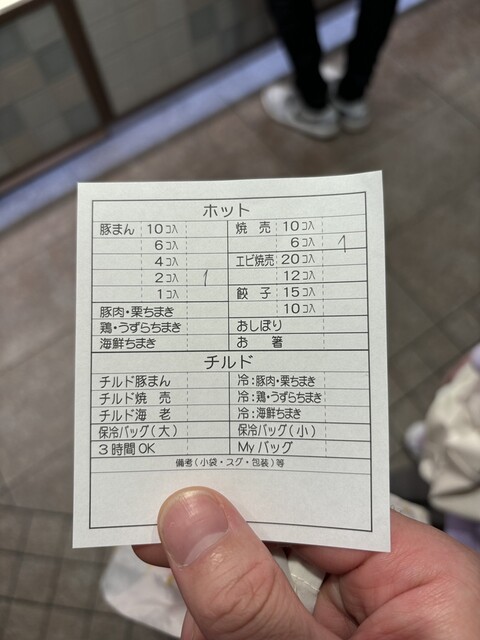 ホット
豚まん 10コ入 焼売 10コ入
6コ入 6コ入 1
4コ入 エビ焼売 20コ入
2コ入 1 12コ入
1コ入 餃子 15コ入
豚肉・栗ちまき 10コ入
鶏・うずらちまき おしぼり
海鮮ちまき お箸
チルド
チルド豚まん 冷:豚肉・栗ちまき
チルド焼売 冷:鶏・うずらちまき
チルド海老 冷:海鮮ちまき
保冷バッグ(大) 保冷バッグ(小)
3時間OK Myバッグ
備考(小袋・スグ・包装)等